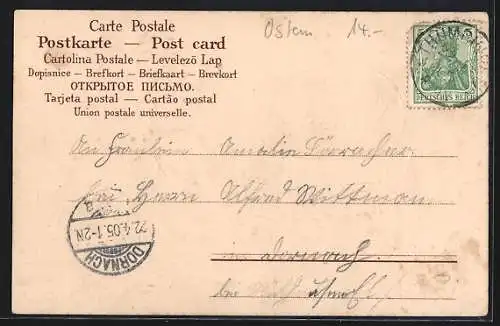 Carte Postale
Postkarte — Post card
Cartolina Postale — Levelező Lap
Dopisnice — Brefkort — Briefkaart — Brevkort
ОТКРЫТОЕ ПИСЬМО.
Tarjeta postal — Cartão postal
Union postale universelle.
Ostern 14.-
DEUTSCHES REICH
An Fräulein Amalie
bei Herrn Alfred Wittman
in Dornach
bei
22.4.05.1-2N
DORNACH